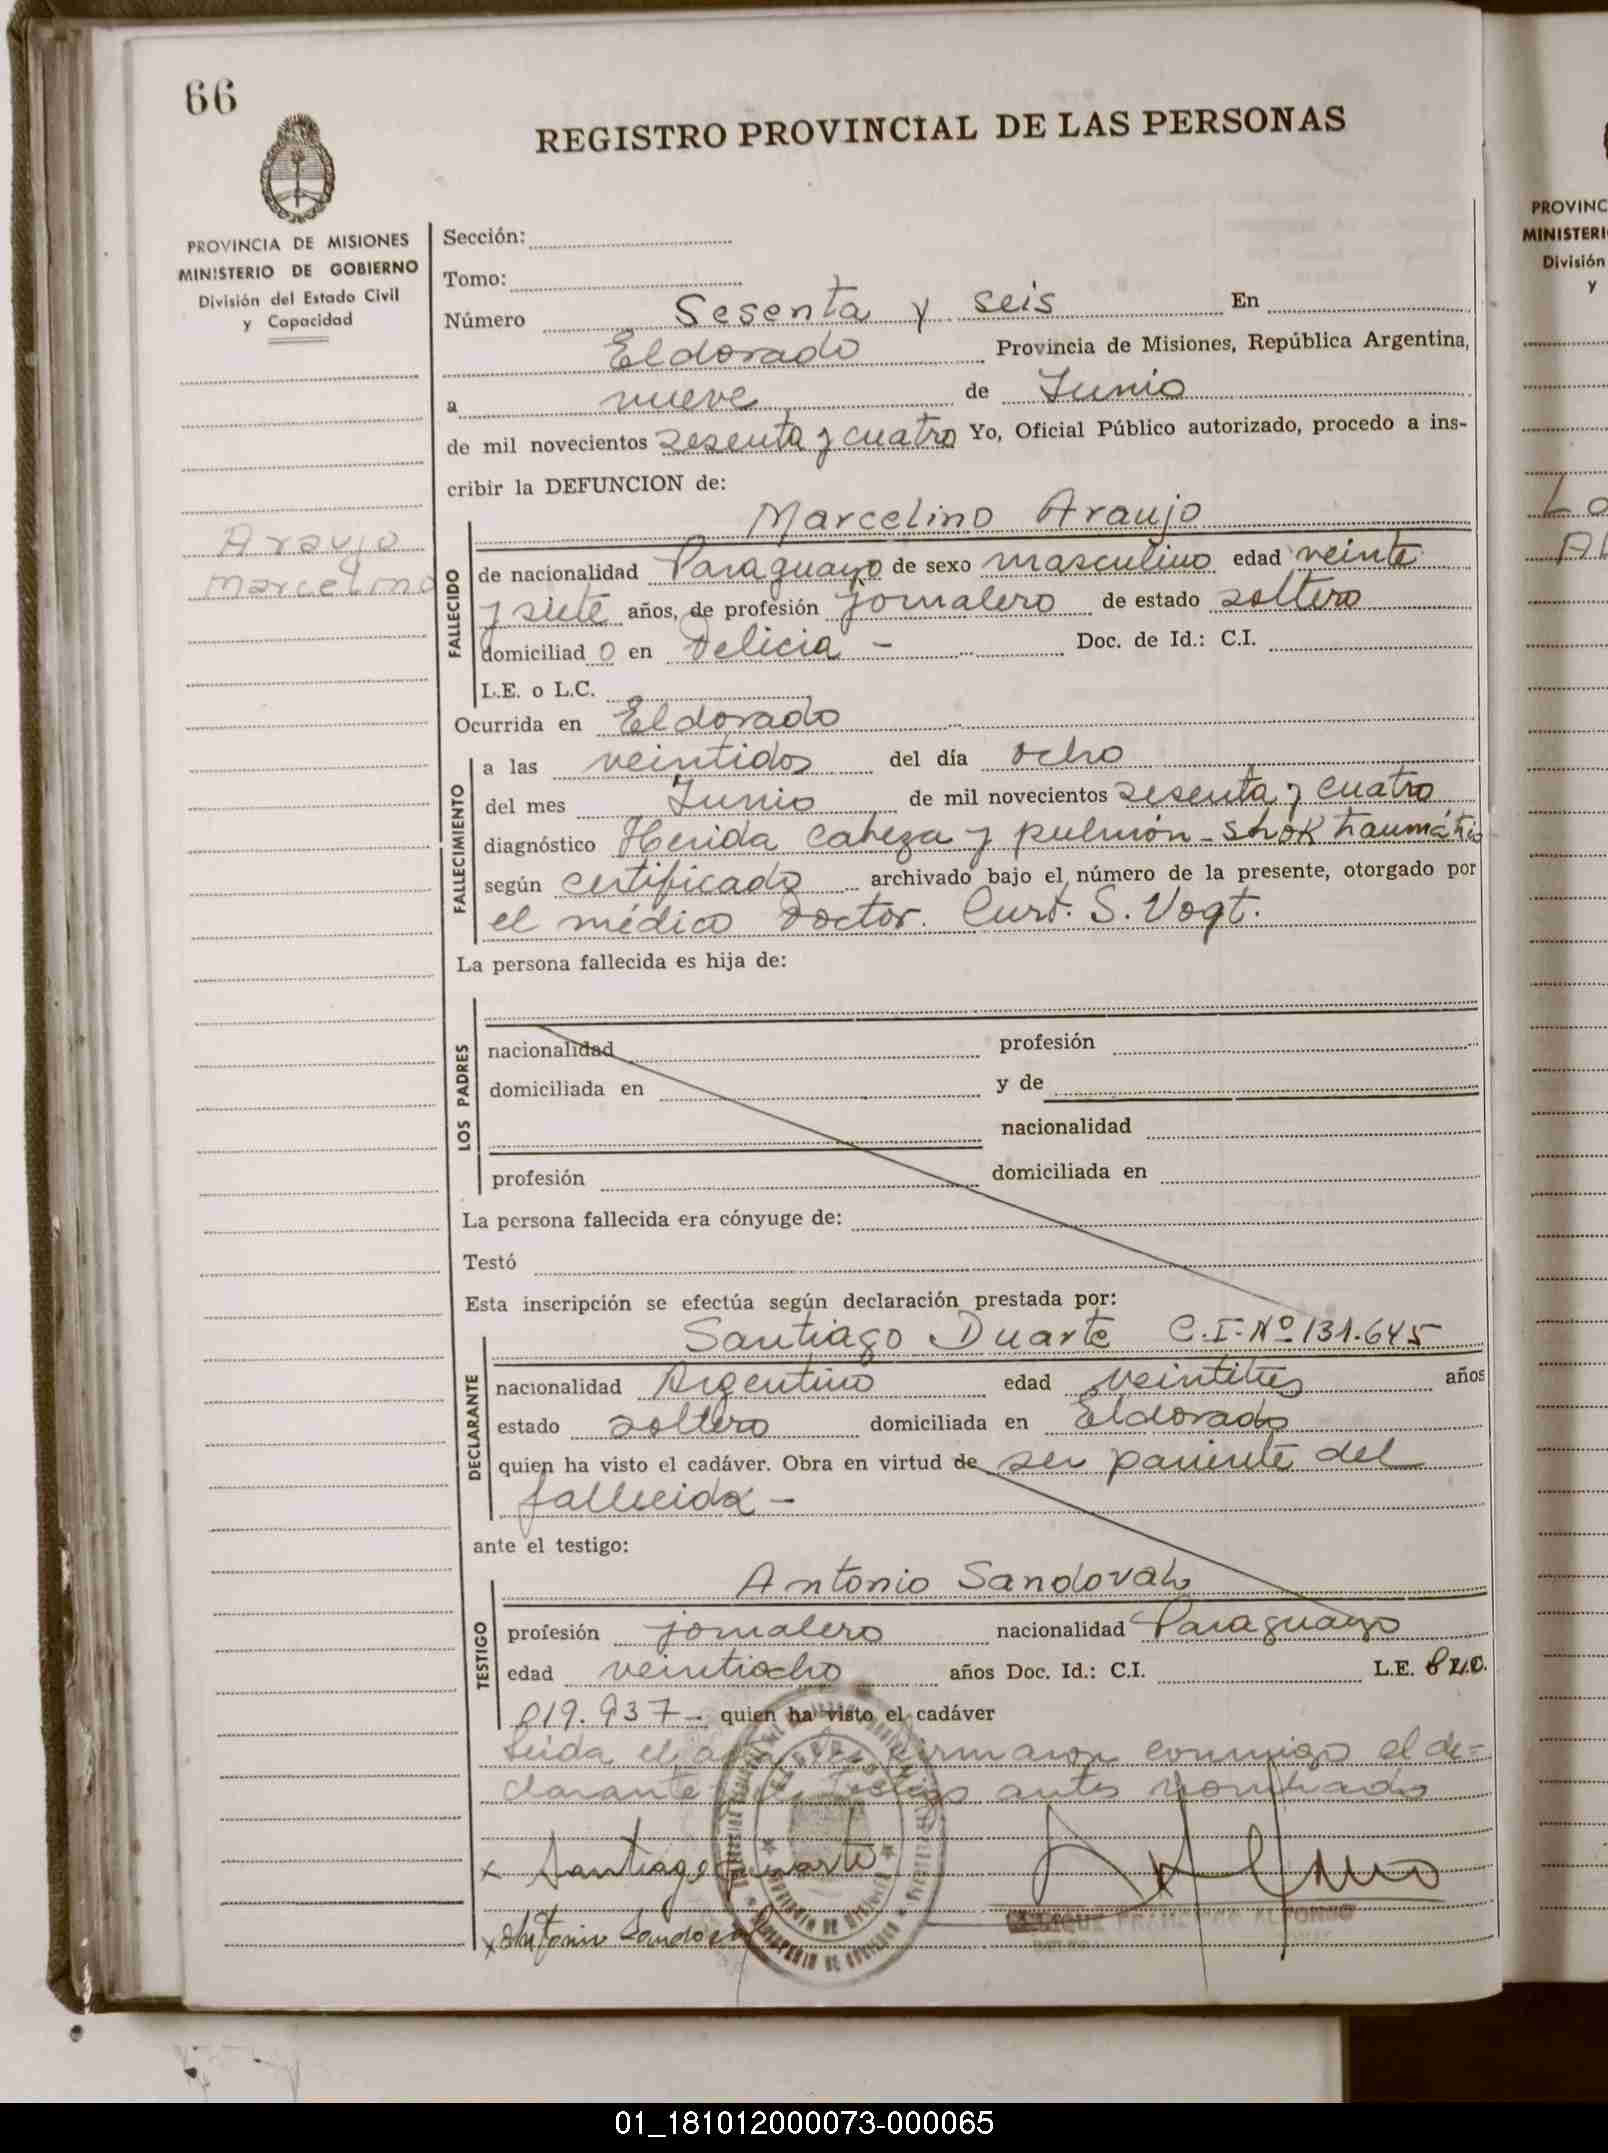 66
REGISTRO PROVINCIAL DE LAS PERSONAS
PROVINCIA DE MISIONES
MINISTERIO DE GOBIERNO
División del Estado Civil
y Capacidad
Araujo
Marcelino
Sección:
Tomo:
Número Sesenta y seis En
Eldorado Provincia de Misiones, República Argentina,
a nueve de Junio
de mil novecientos sesenta y cuatro Yo, Oficial Público autorizado, procedo a ins-
cribir la DEFUNCION de:
Marcelino Araujo
FALLECIDO
de nacionalidad Paraguayo de sexo masculino edad veinte
y siete años, de profesión jornalero de estado soltero
domiciliad o en Delicia - Doc. de Id.: C.I.
L.E. o L.C.
Ocurrida en Eldorado
FALLECIMIENTO
a las veintidos del día ocho
del mes Junio de mil novecientos sesenta y cuatro
diagnóstico Herida cabeza y pulmón - shok traumático
según certificado archivado bajo el número de la presente, otorgado por
el médico Doctor. Curt. S. Vogt.
La persona fallecida es hija de:
LOS PADRES
nacionalidad profesión
domiciliada en y de
nacionalidad
profesión domiciliada en
La persona fallecida era cónyuge de:
Testó
Esta inscripción se efectúa según declaración prestada por:
Santiago Duarte C.I. Nº 131.645
DECLARANTE
nacionalidad Argentino edad veintitres años
estado soltero domiciliada en Eldorado
quien ha visto el cadáver. Obra en virtud de ser pariente del
fallecido -
ante el testigo:
Antonio Sandoval
TESTIGO
profesión jornalero nacionalidad Paraguayo
edad veintiocho años Doc. Id.: C.I. L.E.
019.937 - quien ha visto el cadáver
Leida el acta la firmaron conmigo el de-
clarante y el testigo antes nombrado
x Santiago Duarte
x Antonio Sandoval
ENRIQUE FRANCISCO ALFONSO
PROVINC
MINISTERI
División
y
01_181012000073-000065